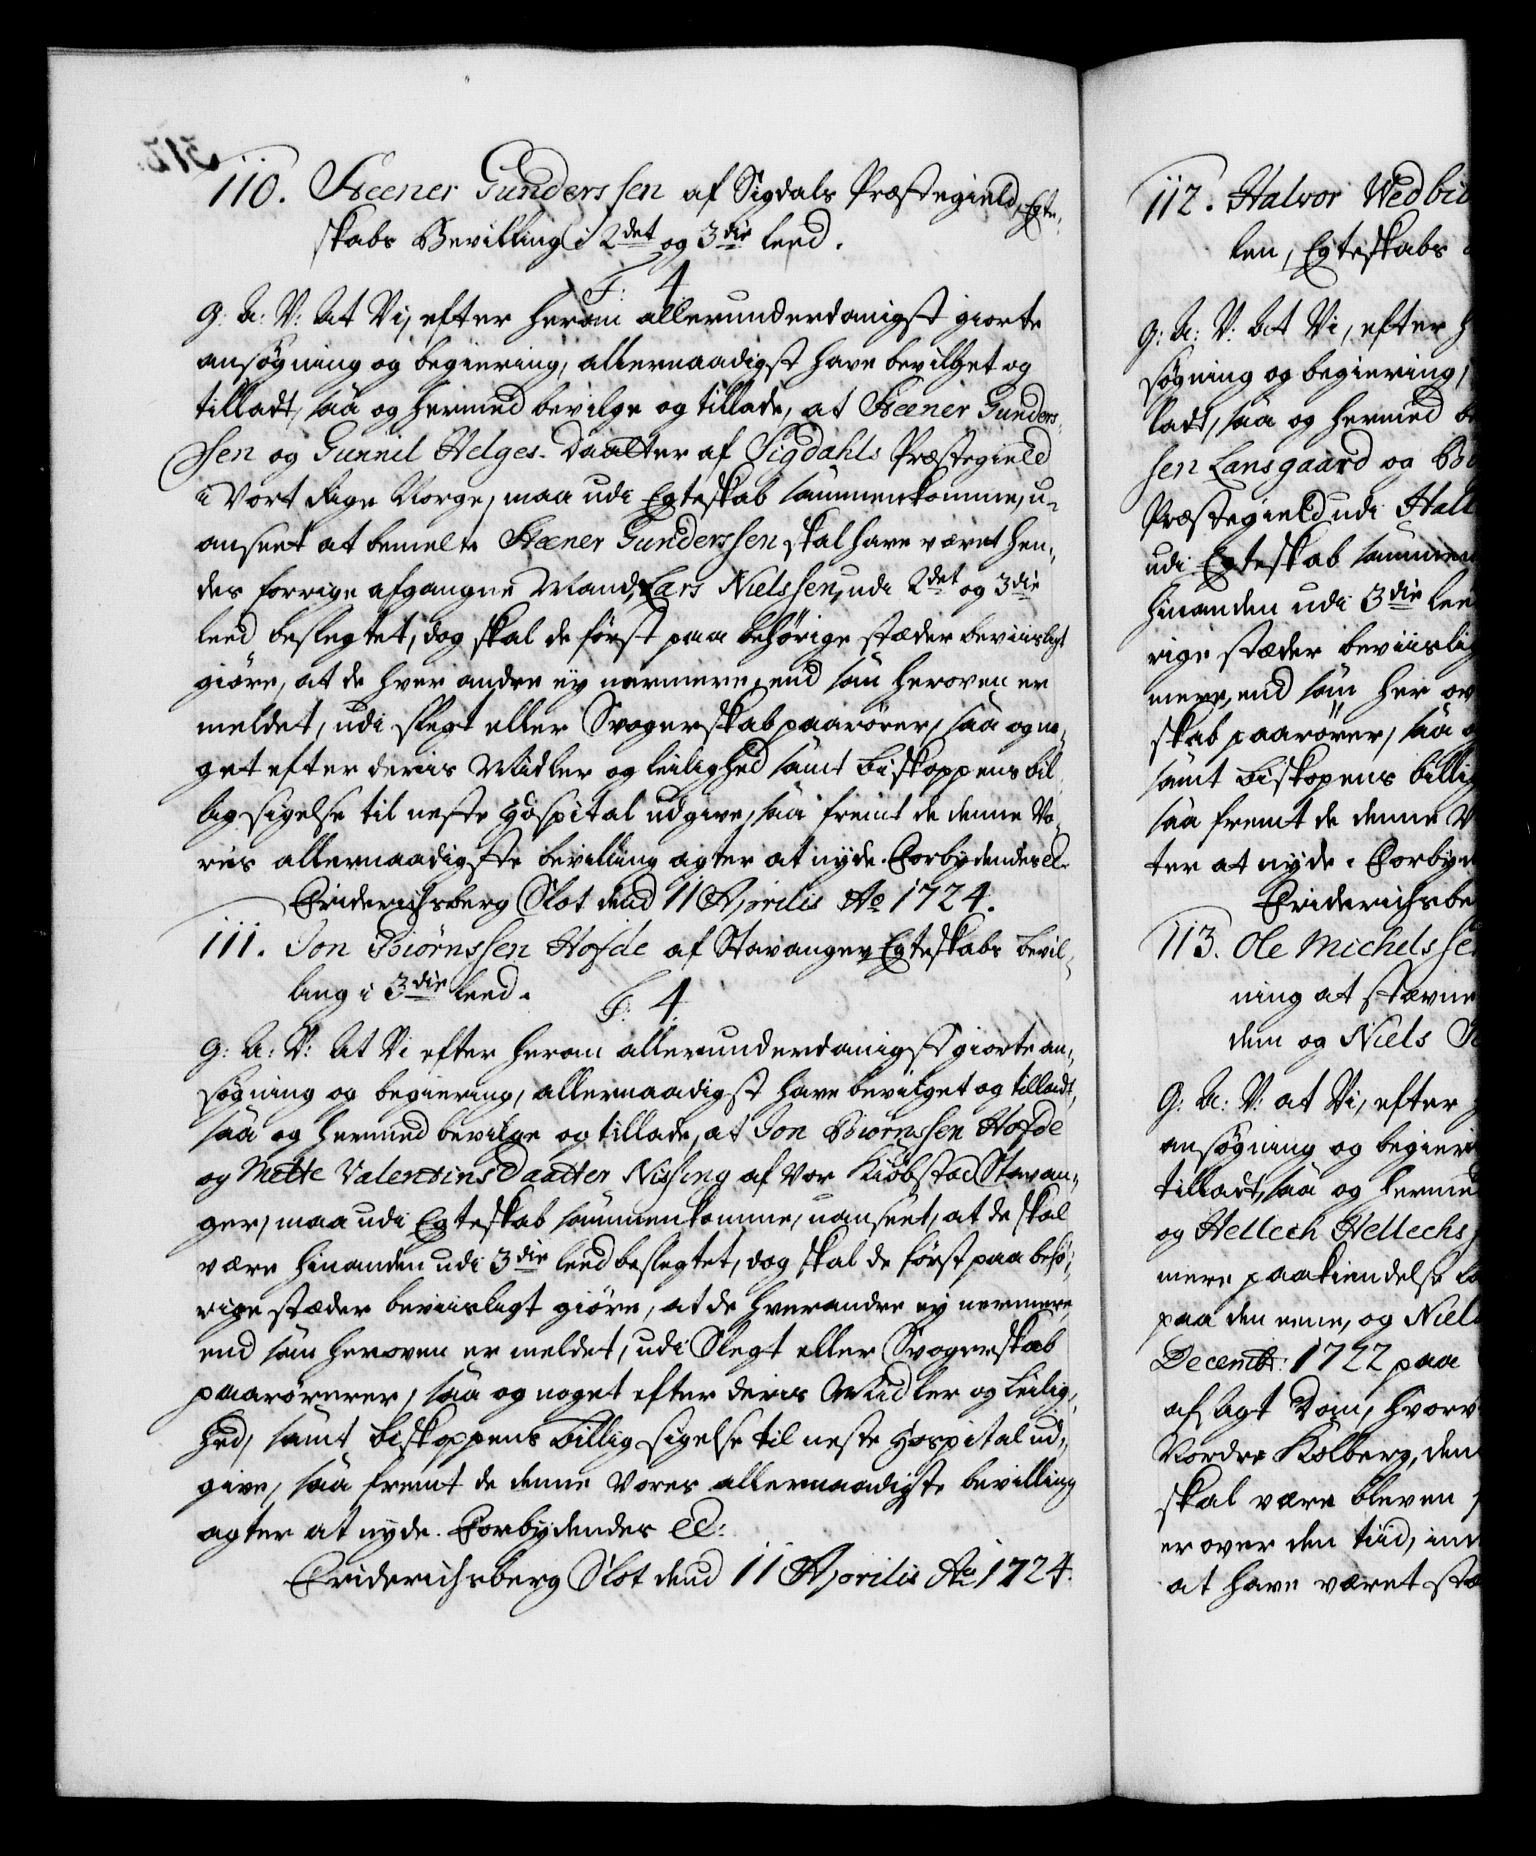 110. Steener Gunderssen af Sigdals Præstegield, Egte-
skabs Bevilling i 2det og 3die leed.
F: 4
G: A: V: At Vi, efter herom allerunderdanigst giorte
ansøgning og begiering, allernaadigst have bevilget og
tilladt, saa og hermed bevilge og tillade, at Steener Gunders-
sen og Gunnil Helges-Daatter af Sigdahls Præstegield
i Vort Rige Norge, maa udi Egteskab sammenkomme, u-
anseet at bemelte Steener Gunderssen skal have været hen-
des forrige afgangne Mand, Lars Nielssen, udi 2det og 3die
leed beslegtet, dog skal de først paa behørige stæder beviisligt
giøre, at de hver andre ey nermere, end som heroven er
meldet, udi slegt eller Svogerskab paarører, saa og no-
get efter deris Midler og leilighed samt biskoppens bil-
lig sigelse til neste Hospital udgive, saa fremt de denne Vo-
res allernaadigste bevilling agter at nyde. Forbydendes etc.
Friderichsberg Slot dend 11 Aprilis Ao 1724.
111. Jon Biørnssen Hofde af Stavanger Egteskabs bevil-
ling i 3die leed.
F: 4
G: A: V: At Vi efter herom allerunderdanigst giorte an-
søgning og begiering, allernaadigst have bevilget og tilladt,
saa og hermed bevilge og tillade, at Jon Biørnssen Hofde
og Mette Valentins Daatter Nissing af Vor Kiøbstad Stavan-
ger, maa udi Egteskab sammenkomme, uanseet, at de skal
være hinanden udi 3die leed beslegtet, dog skal de først paa behø-
rige stæder beviisligt giøre, at de hverandre ey nermere,
end som heroven er meldet, udi Slegt eller Svogerskab
paarørerer, saa og noget efter deris Midler og Leilig-
hed, samt biskoppens billig sigelse til neste Hospital ud-
give, saa fremt de denne Vores allernaadigste bevilling
agter at nyde. Forbydendes etc:
Friderichsberg Slot dend 11 Aprilis Ao 1724.
112. Halvor Wedbio
len, Egteskabs
G: A: V: At Vi, efter h
søgning og begiering,
ladt, saa og hermed be
sen Lansgaard og
Præstegield udi Hall
udi Egteskab sammen
hinanden udi 3die lee
rige stæder beviislig
mere, end som her ov
skab paarører, saa o
samt biskopens billig
saa fremt de denne V
ter at nyde. Forbyd
Friderichsbe
113. Ole Michelsse
ning at stævne
dem og Niels
G: A: V: at Vi, efter
ansøgning og begieri
tilladt, saa og herme
og Hellech Hellechs
mere paakiendelse
paa den eene, og Niel
Decembr: 1722 paa
afsagt Dom, hvorv
Nordre Kolberg, den
skal være bleven
er over den tiid, in
at have været stæ